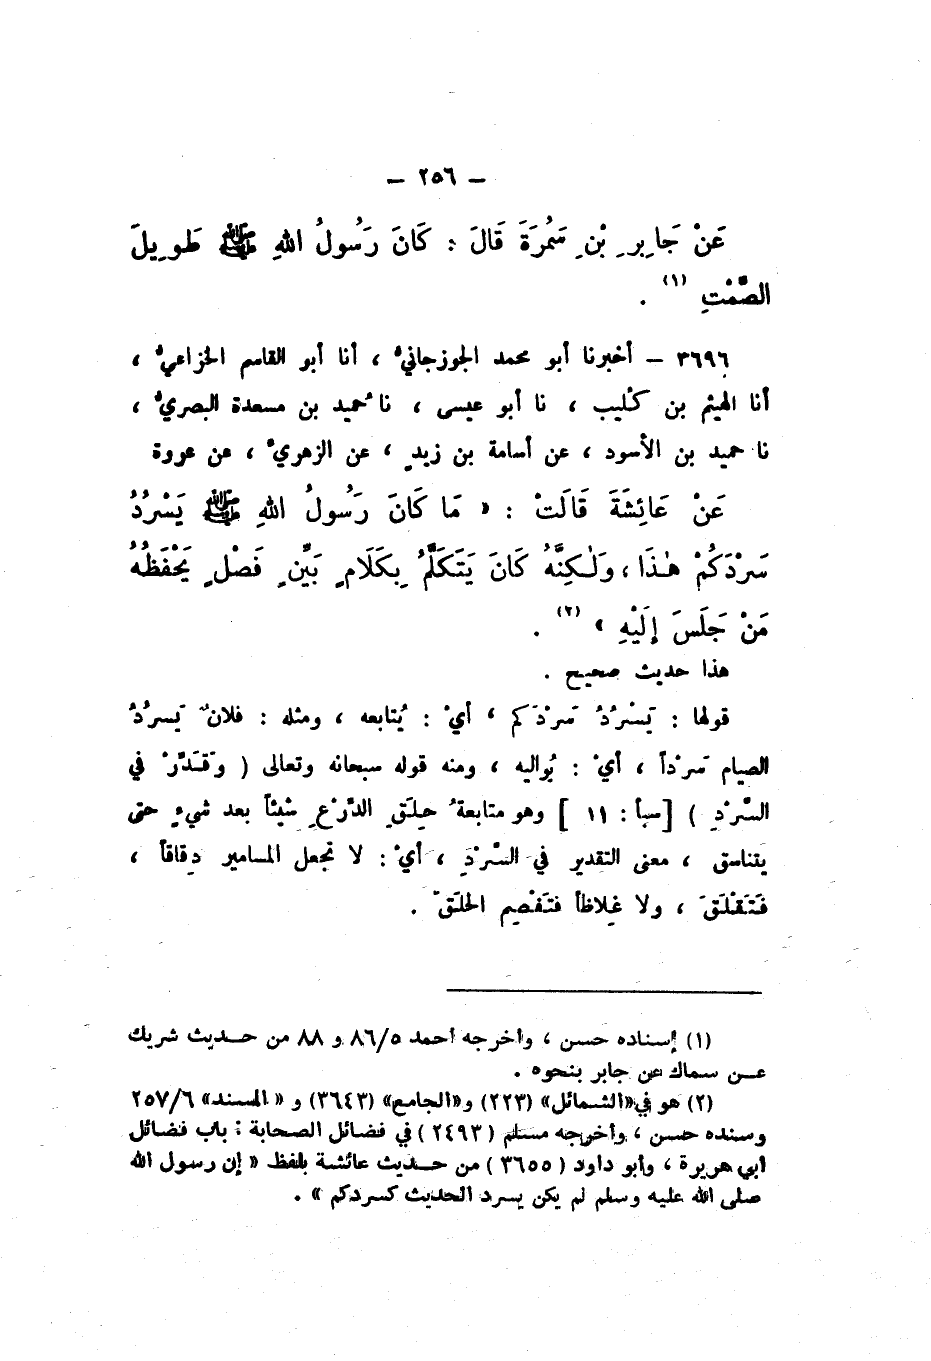 – ٢٥٦ –
عَنْ جَابِرِ بْنِ سَمُرَةَ قَالَ : كَانَ رَسُولُ اللهِ ﷺ طَوِيلَ
الصَّمْتِ (١) .
٣٦٩٦ – أخبرنا أبو محمد الجوزجانيُّ ، أنا أبو القاسم الخزاعيُّ ،
أنا الهيثم بن كُليب ، نا أبو عيسى ، نا حُميد بن مسعدة البصريُّ ،
نا حميد بن الأسود ، عن أسامة بن زيدٍ ، عن الزهريِّ ، عن عروة
عَنْ عَائِشَةَ قَالَتْ : « مَا كَانَ رَسُولُ اللهِ ﷺ يَسْرُدُ
سَرْدَكُمْ هٰذَا ، وَلٰكِنَّهُ كَانَ يَتَكَلَّمُ بِكَلَامٍ بَيِّنٍ فَصْلٍ يَحْفَظُهُ
مَنْ جَلَسَ إِلَيْهِ » (٢) .
هذا حديث صحيح .
قولها : يَسْرُدُ سَرْدَكم ، أيْ : يُتابعه ، ومثله : فلانٌ يَسرُدُ
الصيام سَرْداً ، أيْ : يُواليه ، ومنه قوله سبحانه وتعالى ( وَقَدِّرْ في
السَّرْدِ ) [سبأ : ١١ ] وهو متابعةُ حِلَقِ الدِّرْعِ شيئاً بعد شيءٍ حتى
يتناسق ، معنى التقدير في السَّرْدِ ، أيْ : لا تجعل المسامير دِقاقاً ،
فَتَقْلَقَ ، ولا غِلاظاً فتَفْصِم الحلَقَ .
(١) إسناده حسن ، وأخرجه أحمد ٨٦/٥ و ٨٨ من حديث شريك
عن سماك عن جابر بنحوه .
(٢) هو في«الشمائل» (٢٢٣) و«الجامع» (٣٦٤٣) و « المسند» ٢٥٧/٦
وسنده حسن ، وأخرجه مسلم (٢٤٩٣) في فضائل الصحابة : باب فضائل
أبي هريرة ، وأبو داود (٣٦٥٥) من حديث عائشة بلفظ « إن رسول الله
صلى الله عليه وسلم لم يكن يسرد الحديث كسردكم » .